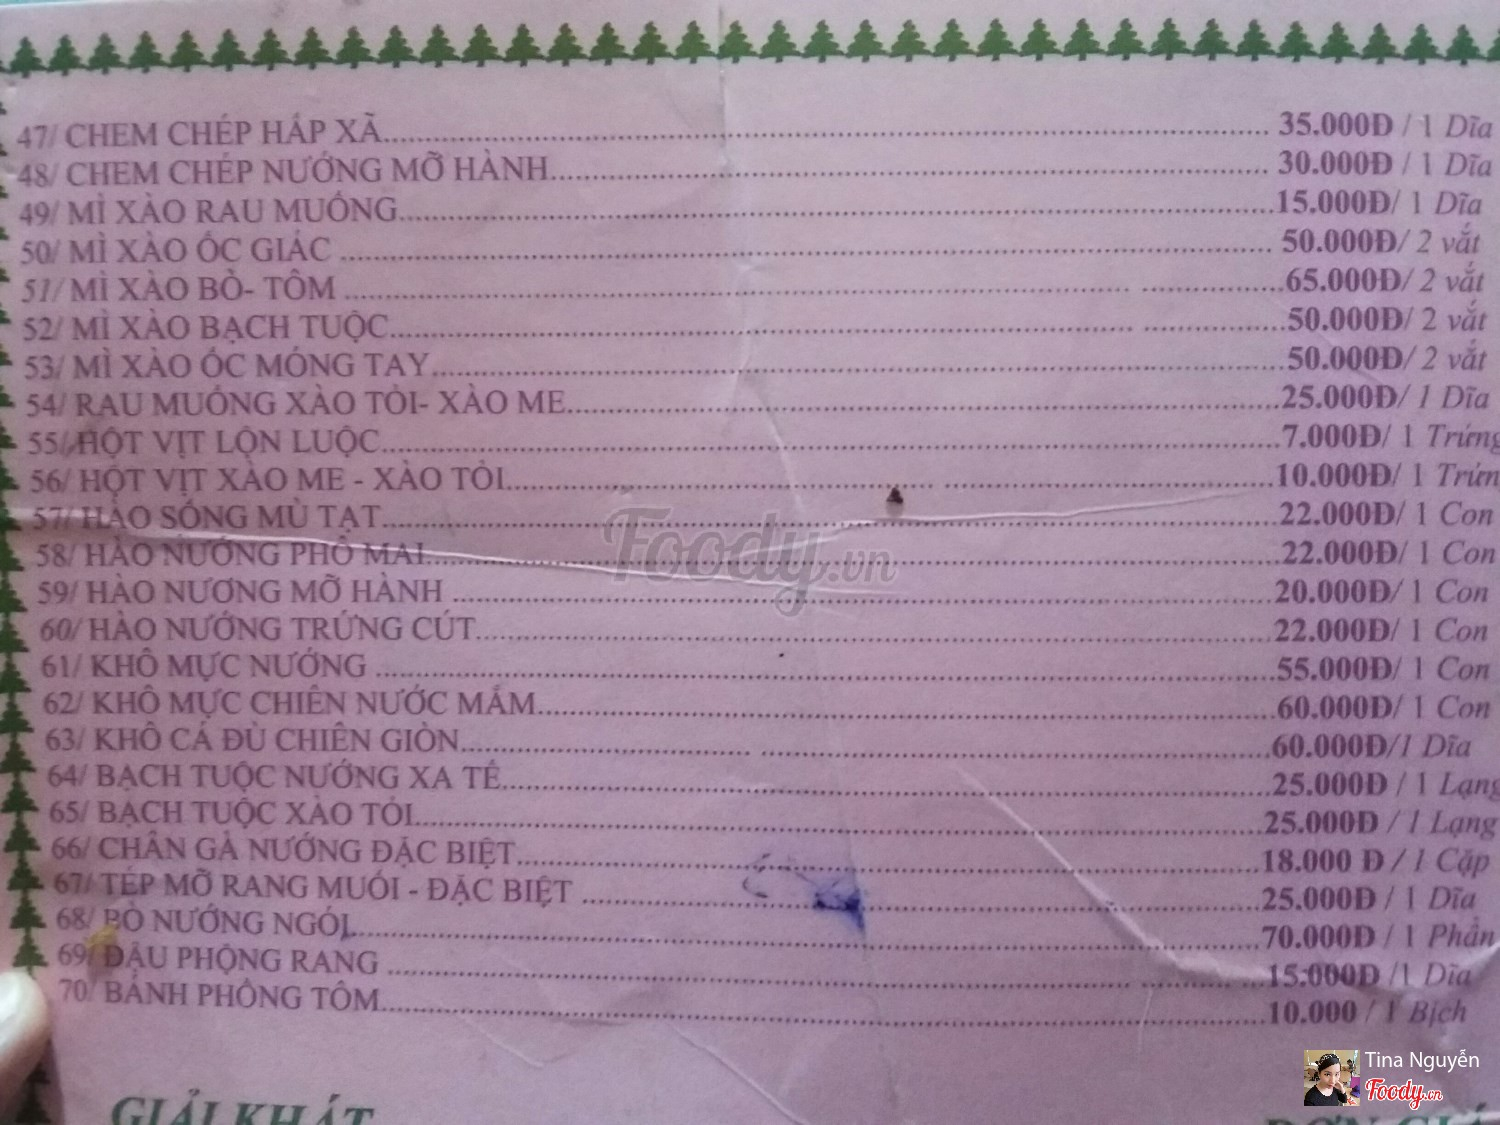 47/ CHEM CHÉP HẤP XÃ........ 35.000Đ / 1 Dĩa
48/ CHEM CHÉP NƯỚNG MỠ HÀNH........ 30.000Đ / 1 Dĩa
49/ MÌ XÀO RAU MUỐNG........15.000Đ/ 1 Dĩa
50/ MÌ XÀO ỐC GIÁC ........ 50.000Đ/ 2 vắt
51/ MÌ XÀO BÒ- TÔM ........65.000Đ/ 2 vắt
52/ MÌ XÀO BẠCH TUỘC........50.000Đ/ 2 vắt
53/ MÌ XÀO ỐC MÓNG TAY........50.000Đ/ 2 vắt
54/ RAU MUỐNG XÀO TỎI- XÀO ME........25.000Đ/ 1 Dĩa
55/ HỘT VỊT LỘN LUỘC........7.000Đ/ 1 Trứng
56/ HỘT VỊT XÀO ME - XÀO TỎI........10.000Đ/ 1 Trứn
57/ HÀO SỐNG MÙ TẠT........22.000Đ/ 1 Con
58/ HÀO NƯỚNG PHÔ MAI........22.000Đ/ 1 Con
59/ HÀO NƯƠNG MỠ HÀNH ........20.000Đ/ 1 Con
60/ HÀO NƯỚNG TRỨNG CÚT........22.000Đ/ 1 Con
61/ KHÔ MỰC NƯỚNG ........55.000Đ/ 1 Con
62/ KHÔ MỰC CHIÊN NƯỚC MẮM........60.000Đ/ 1 Con
63/ KHÔ CÁ ĐÙ CHIÊN GIÒN........60.000Đ/1 Dĩa
64/ BẠCH TUỘC NƯỚNG XA TẾ........25.000Đ / 1 Lạng
65/ BẠCH TUỘC XÀO TỎI........25.000Đ / 1 Lạng
66/ CHÂN GÀ NƯỚNG ĐẶC BIỆT........18.000 Đ / 1 Cặp
67/ TÉP MỠ RANG MUỐI - ĐẶC BIỆT ........25.000Đ / 1 Dĩa
68/ BÒ NƯỚNG NGÓI........70.000Đ / 1 Phần
69/ ĐẬU PHỘNG RANG ........15.000Đ /1 Dĩa
70/ BÁNH PHỒNG TÔM........10.000 / 1 Bịch
GIẢI KHÁT ĐƠN GIÁ
Foody.vn
Tina Nguyễn
Foody.vn